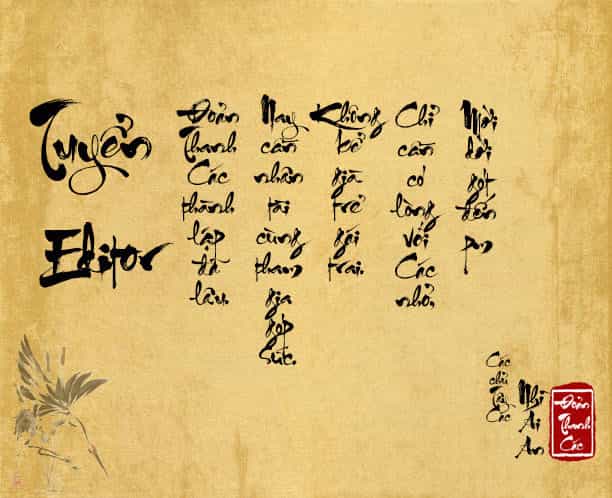 Tuyển
Editor
Đoản Thanh Các thành lập đã lâu.
Nay cần nhân tài cùng tham gia góp sức.
Không kể già trẻ gái trai.
Chỉ cần có lòng với Các nhỏ,
Mời dời gót đến pm
Các chủ Tây Các
Nhĩ Ai An
Đoản Thanh Các